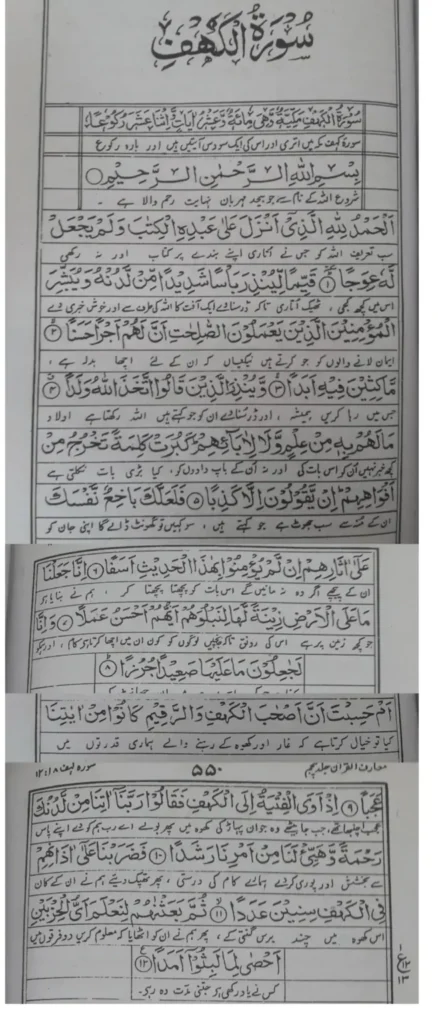 سُوْرَةُ الْكَهْفِ
سُوْرَةُ الْكَهْفِ مَكِّيَّةٌ وَّهِيَ مِائَةٌ وَّعَشْرُ اٰيَاتٍ وَّاثْنَا عَشَرَ رُكُوْعًا
سورۂ کہف مکہ میں اتری اور اس کی ایک سو دس آیتیں ہیں اور بارہ رکوع
بِسْمِ اللهِ الرَّحْمٰنِ الرَّحِيْمِ
شروع اللہ کے نام سے جو بیحد مہربان نہایت رحم والا ہے۔
اَلْحَمْدُ لِلّٰهِ الَّذِيْٓ اَنْزَلَ عَلٰى عَبْدِهِ الْكِتٰبَ وَلَمْ يَجْعَلْ
سب تعریف اللہ کو جس نے اتاری اپنے بندے پر کتاب اور نہ رکھی
لَّهٗ عِوَجًا ۱ قَيِّمًا لِّيُنْذِرَ بَاْسًا شَدِيْدًا مِّنْ لَّدُنْهُ وَيُبَشِّرَ
اس میں کچھ کجی، ٹھیک اتاری تاکہ ڈر سنا دے ایک آفت کا اللہ کی طرف سے اور خوش خبری دے
الْمُؤْمِنِيْنَ الَّذِيْنَ يَعْمَلُوْنَ الصّٰلِحٰتِ اَنَّ لَهُمْ اَجْرًا حَسَنًا ۲
ایمان لانے والوں کو جو کرتے ہیں نیکیاں کہ ان کے لئے اچھا بدلہ ہے،
مَّاكِثِيْنَ فِيْهِ اَبَدًا ۳ وَّيُنْذِرَ الَّذِيْنَ قَالُوا اتَّخَذَ اللهُ وَلَدًا ۴
جس میں رہا کریں ہمیشہ، اور ڈر سنا دے ان کو جو کہتے ہیں اللہ رکھتا ہے اولاد
مَا لَهُمْ بِهٖ مِنْ عِلْمٍ وَّلَا لِاٰبَآئِهِمْ كَبُرَتْ كَلِمَةً تَخْرُجُ مِنْ
کچھ خبر نہیں ان کو اس بات کی اور نہ ان کے باپ دادوں کو، کیا بڑی بات نکلتی ہے
اَفْوَاهِهِمْ اِنْ يَّقُوْلُوْنَ اِلَّا كَذِبًا ۵ فَلَعَلَّكَ بَاخِعٌ نَّفْسَكَ
ان کے منہ سے سب جھوٹ ہے جو کہتے ہیں، سو کہیں تو گھونٹ ڈالے گا اپنی جان کو
عَلٰٓى اٰثَارِهِمْ اِنْ لَّمْ يُؤْمِنُوْا بِهٰذَا الْحَدِيْثِ اَسَفًا ۶ اِنَّا جَعَلْنَا
ان کے پیچھے اگر وہ نہ مانیں گے اس بات کو پچھتا پچھتا کر، ہم نے بنایا ہے
مَا عَلَى الْاَرْضِ زِيْنَةً لَّهَا لِنَبْلُوَهُمْ اَيُّهُمْ اَحْسَنُ عَمَلًا ۷ وَاِنَّا
جو کچھ زمین پر ہے اس کی رونق تاکہ جانچیں لوگوں کو کون ان میں اچھا کرتا ہے کام، اور ہم کو
لَجٰعِلُوْنَ مَا عَلَيْهَا صَعِيْدًا جُرُزًا ۸
اَمْ حَسِبْتَ اَنَّ اَصْحٰبَ الْكَهْفِ وَالرَّقِيْمِ كَانُوْا مِنْ اٰيٰتِنَا
کیا تو خیال کرتا ہے کہ غار اور کھوہ کے رہنے والے ہماری قدرتوں میں
معارف القرآن جلد پنجم
۵۵۰
سورۂ کہف ۱۸ : ۱۲
عَجَبًا ۹ اِذْ اَوَى الْفِتْيَةُ اِلَى الْكَهْفِ فَقَالُوْا رَبَّنَآ اٰتِنَا مِنْ لَّدُنْكَ
عجب اچنبھا تھے، جب جا بیٹھے وہ جوان پہاڑ کی کھوہ میں پھر بولے اے رب ہم کو دے اپنے پاس
رَحْمَةً وَّهَيِّئْ لَنَا مِنْ اَمْرِنَا رَشَدًا ۱۰ فَضَرَبْنَا عَلٰٓى اٰذَانِهِمْ
سے بخشش اور پوری کر دے ہمارے کام کی درستی، پھر تھپک دیئے ہم نے ان کے کان
فِى الْكَهْفِ سِنِيْنَ عَدَدًا ۱۱ ثُمَّ بَعَثْنٰهُمْ لِنَعْلَمَ اَىُّ الْحِزْبَيْنِ
اس کھوہ میں چند برس گنتی کے، پھر ہم نے ان کو اٹھایا کہ معلوم کریں دو فرقوں میں
اَحْصٰى لِمَا لَبِثُوْٓا اَمَدًا ۱۲
کس نے یاد رکھی ہے جتنی مدت وہ رہے۔